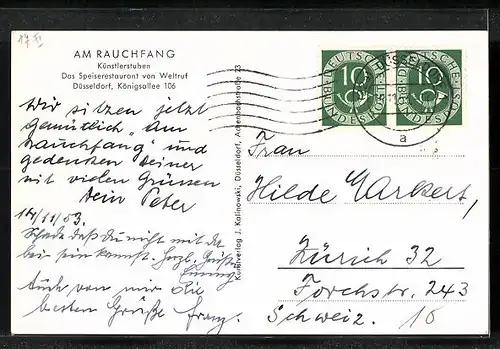 17 XI
AM RAUCHFANG
Künstlerstuben
Das Speiserestaurant von Weltruf
Düsseldorf, Königsallee 106
Wir sitzen jetzt
gemütlich "am
Rauchfang" und
gedenken Deiner
mit vielen Grüssen
Dein Peter
14/11/53.
Schade daß Du nicht mit da-
bei sein kannst. Herzl. Grüße
Auch von mir die
besten Grüße Franz.
Kunstverlag J. Kalinowski, Düsseldorf, Achenbachstraße 23
DEUTSCHE
BUNDESPOST
10
DEUTSCHE
BUNDESPOST
10
a
Frau
Hilde
Zürich 32
Forchstr. 243
Schweiz.
10